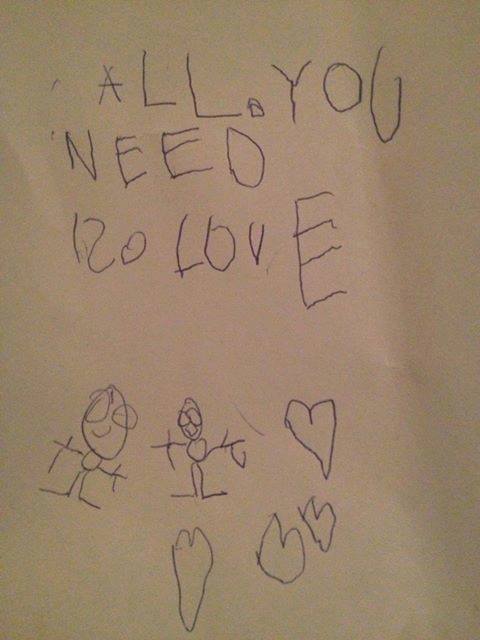 ALL. YOU
NEED
IS. LOVE